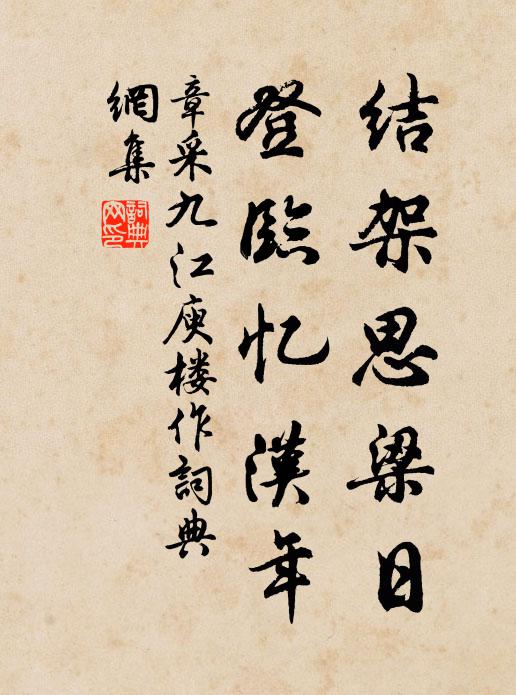 结架思梁日
登临忆漢年
章采九江庾楼作詞典
網集
詞典
网印